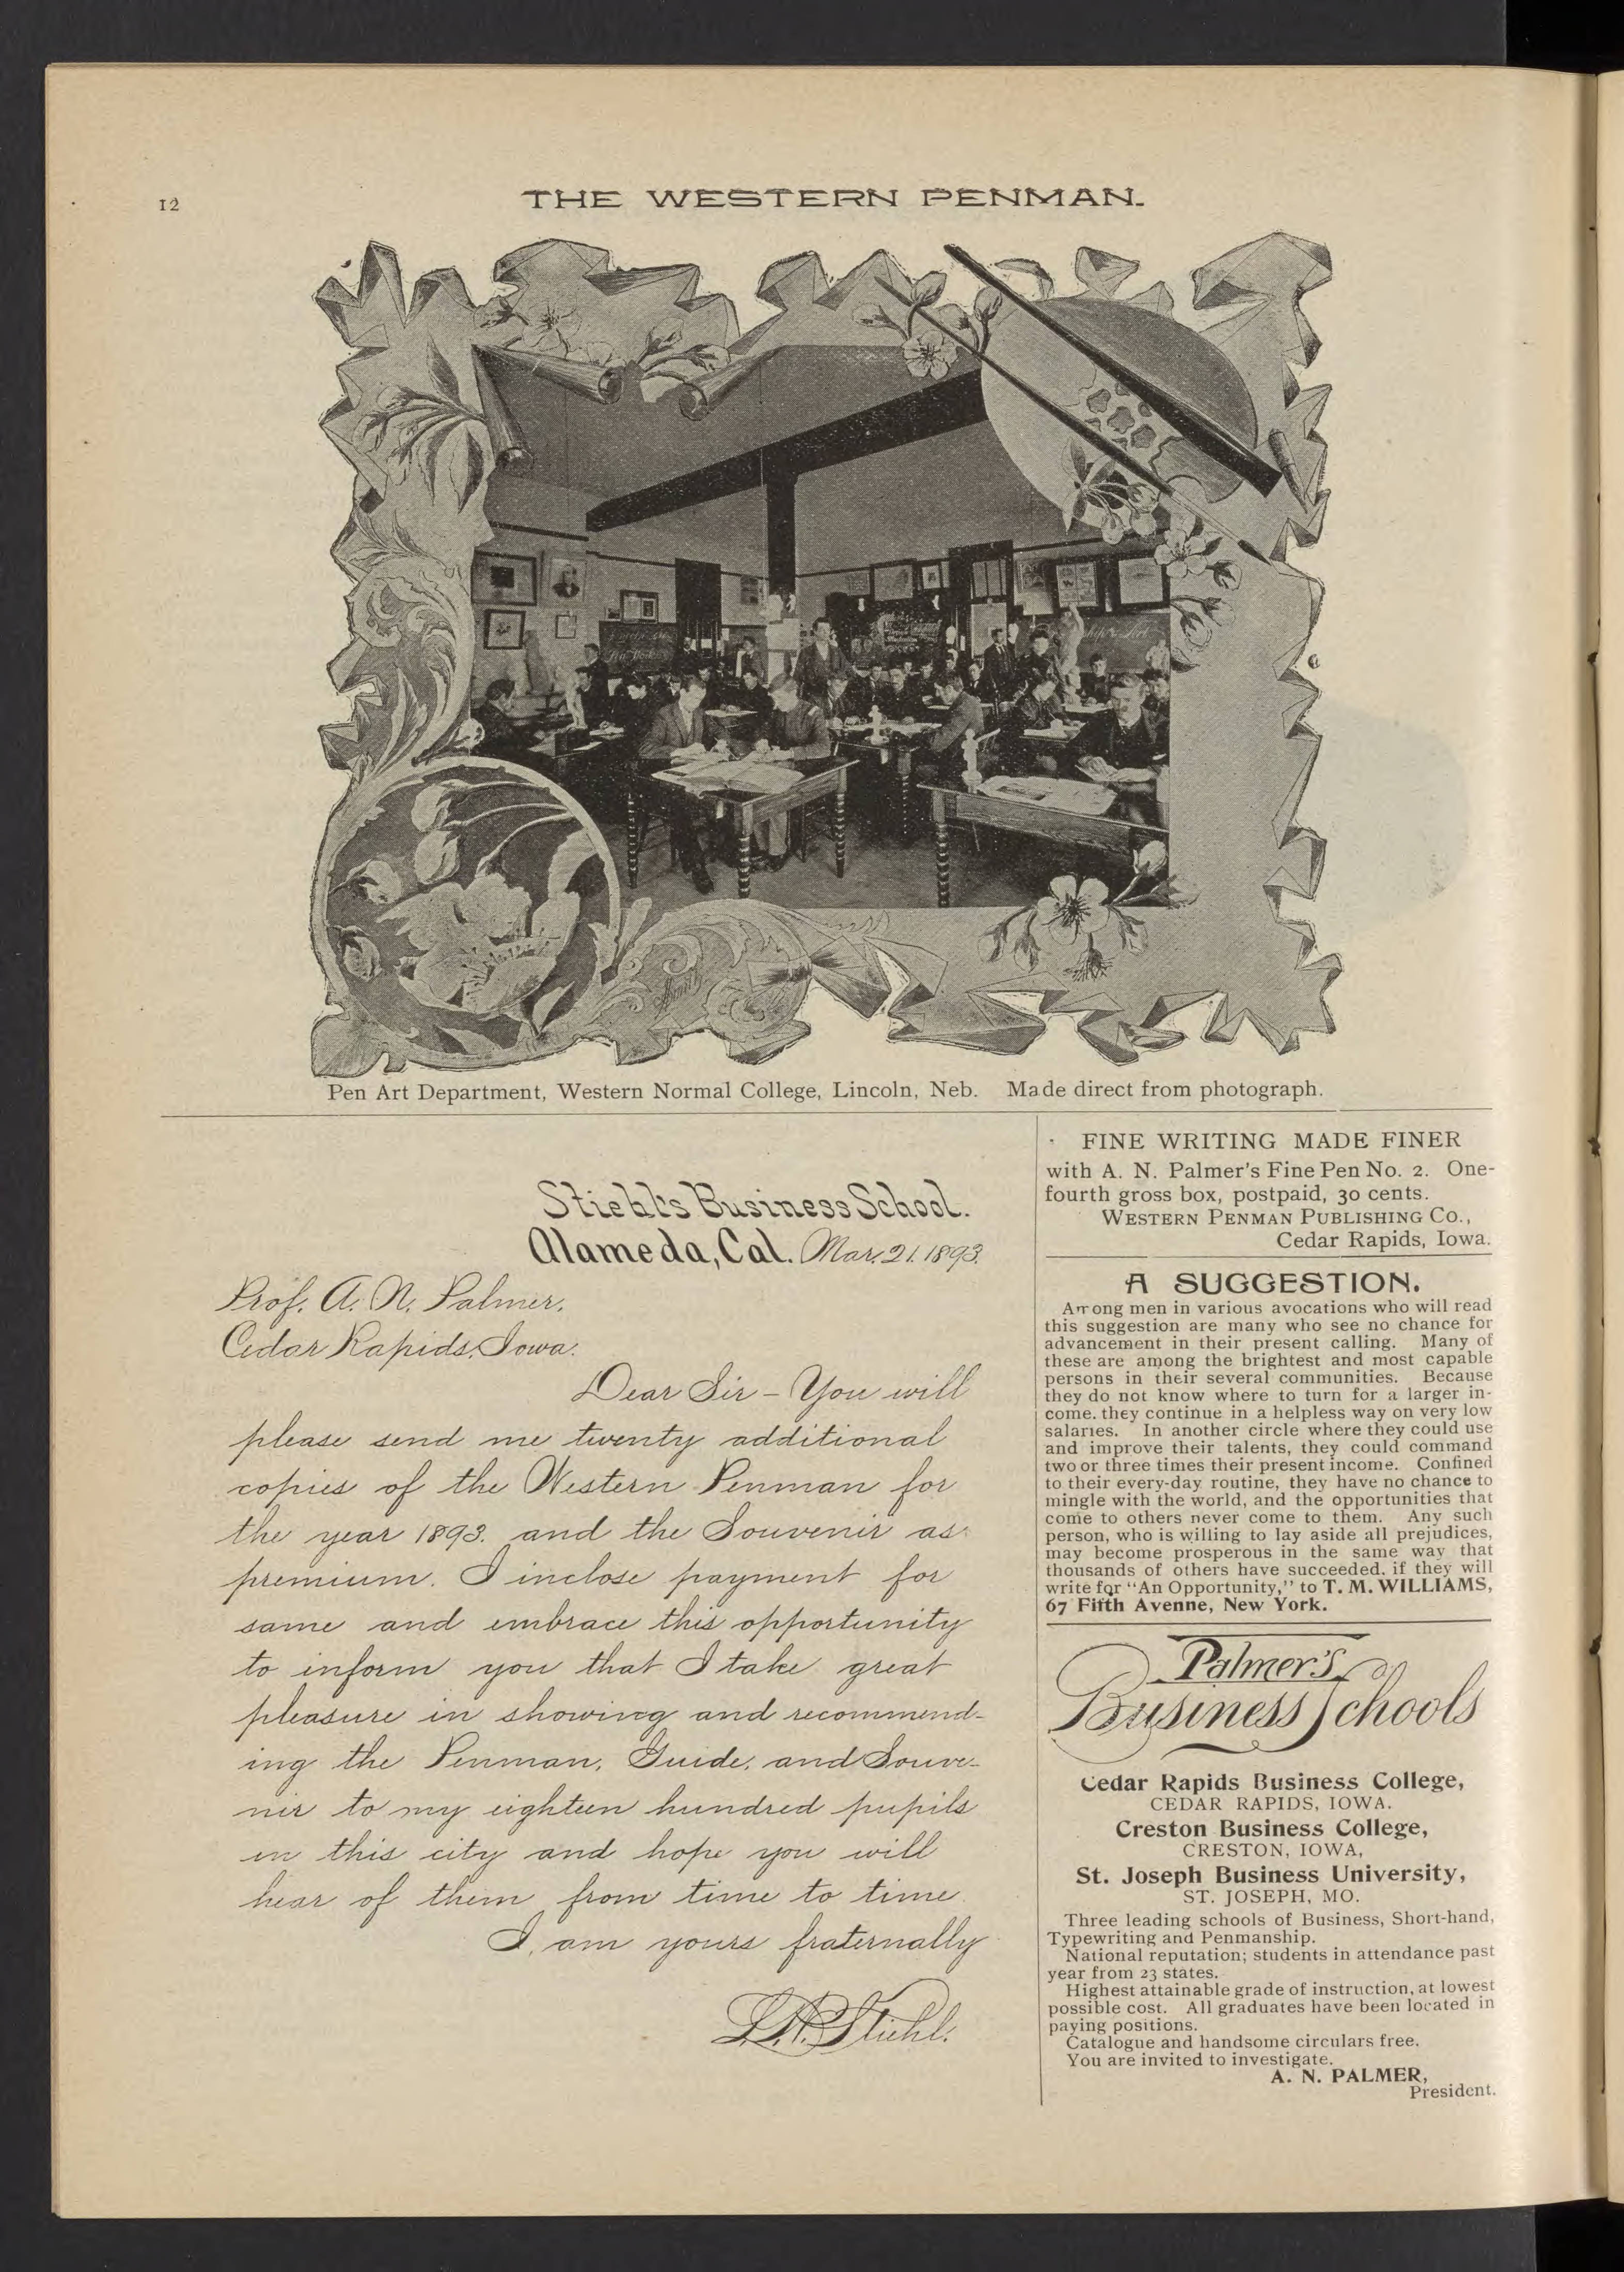 12
THE WESTERN PENMAN.
Pen Art Department, Western Normal College, Lincoln, Neb. Made direct from photograph.
Stiehl's Business School.
Alameda, Cal. Mar. 21. 1893.
Prof. A. N. Palmer,
Cedar Rapids, Iowa.
Dear Sir – You will
please send me twenty additional
copies of the Western Penman for
the year 1893. and the Souvenir as
premium. I inclose payment for
same and embrace this opportunity
to inform you that I take great
pleasure in showing and recommend-
ing the Penman, Guide, and Souve-
nir to my eighteen hundred pupils
in this city and hope you will
hear of them from time to time.
I am yours fraternally
Stiehl.
FINE WRITING MADE FINER
with A. N. Palmer's Fine Pen No. 2. One-
fourth gross box, postpaid, 30 cents.
WESTERN PENMAN PUBLISHING CO.,
Cedar Rapids, Iowa.
A SUGGESTION.
Among men in various avocations who will read
this suggestion are many who see no chance for
advancement in their present calling. Many of
these are among the brightest and most capable
persons in their several communities. Because
they do not know where to turn for a larger in-
come. they continue in a helpless way on very low
salaries. In another circle where they could use
and improve their talents, they could command
two or three times their present income. Confined
to their every-day routine, they have no chance to
mingle with the world, and the opportunities that
come to others never come to them. Any such
person, who is willing to lay aside all prejudices,
may become prosperous in the same way that
thousands of others have succeeded. if they will
write for "An Opportunity," to T. M. WILLIAMS,
67 Fifth Avenne, New York.
Palmer's
Business Schools
Cedar Rapids Business College,
CEDAR RAPIDS, IOWA.
Creston Business College,
CRESTON, IOWA,
St. Joseph Business University,
ST. JOSEPH, MO.
Three leading schools of Business, Short-hand,
Typewriting and Penmanship.
National reputation; students in attendance past
year from 23 states.
Highest attainable grade of instruction, at lowest
possible cost. All graduates have been located in
paying positions.
Catalogue and handsome circulars free.
You are invited to investigate.
A. N. PALMER,
President.